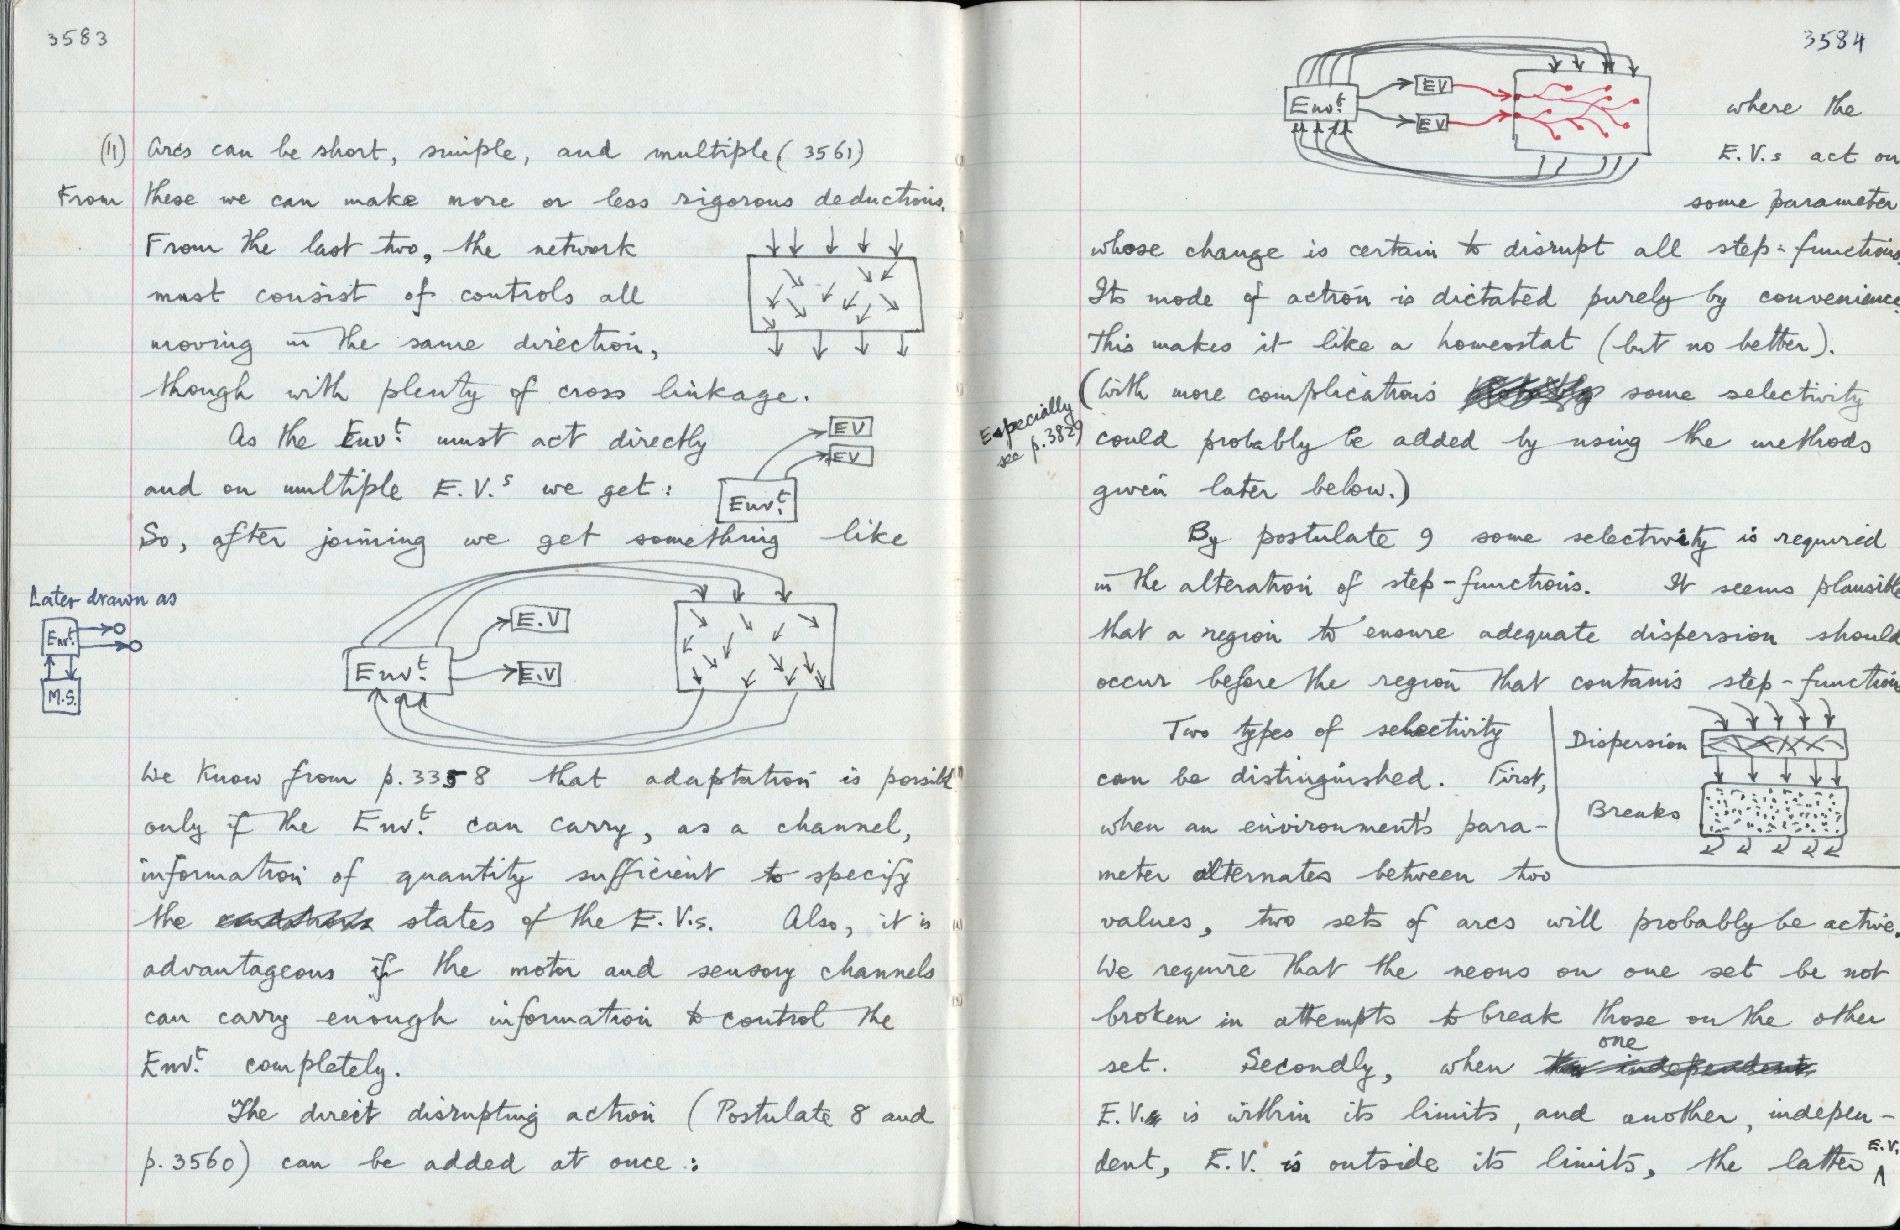 3583
(11) Arcs can be short, simple, and multiple (3561)
From these we can make more or less rigorous deductions.
From the last two, the network
must consist of controls all
moving in the same direction,
though with plenty of cross linkage.
As the Envt. must act directly
and on multiple E.V.s we get:
EV
EV
Envt.
So, after joining we get something like
Later drawn as
Envt.
M.S.
Envt.
E.V
E.V
We know from p.3358 that adaptation is possible
only if the Envt. can carry, as a channel,
information of quantity sufficient to specify
the states of the E.V.s. Also, it is
advantageous if the motor and sensory channels
can carry enough information to control the
Envt. completely.
The direct disrupting action (Postulate 8 and
p.3560) can be added at once:
3584
Envt.
EV
EV
where the
E.V.s act on
some parameter
whose change is certain to disrupt all step-functions.
Its mode of action is dictated purely by convenience.
This makes it like a homeostat (but no better).
(With more complications some selectivity
Especially
see p.3829
could probably be added by using the methods
given later below.)
By postulate 9 some selectivity is required
in the alteration of step-functions. It seems plausible
that a region to ensure adequate dispersion should
occur before the region that contains step-function
Two types of selectivity
can be distinguished. First,
when an environment's para-
meter alternates between two
Dispersion
Breaks
values, two sets of arcs will probably be active.
We require that the neons on one set be not
broken in attempts to break those on the other
set. Secondly, when one
E.V. is within its limits, and another, indepen-
dent, E.V. is outside its limits, the latter E.V.